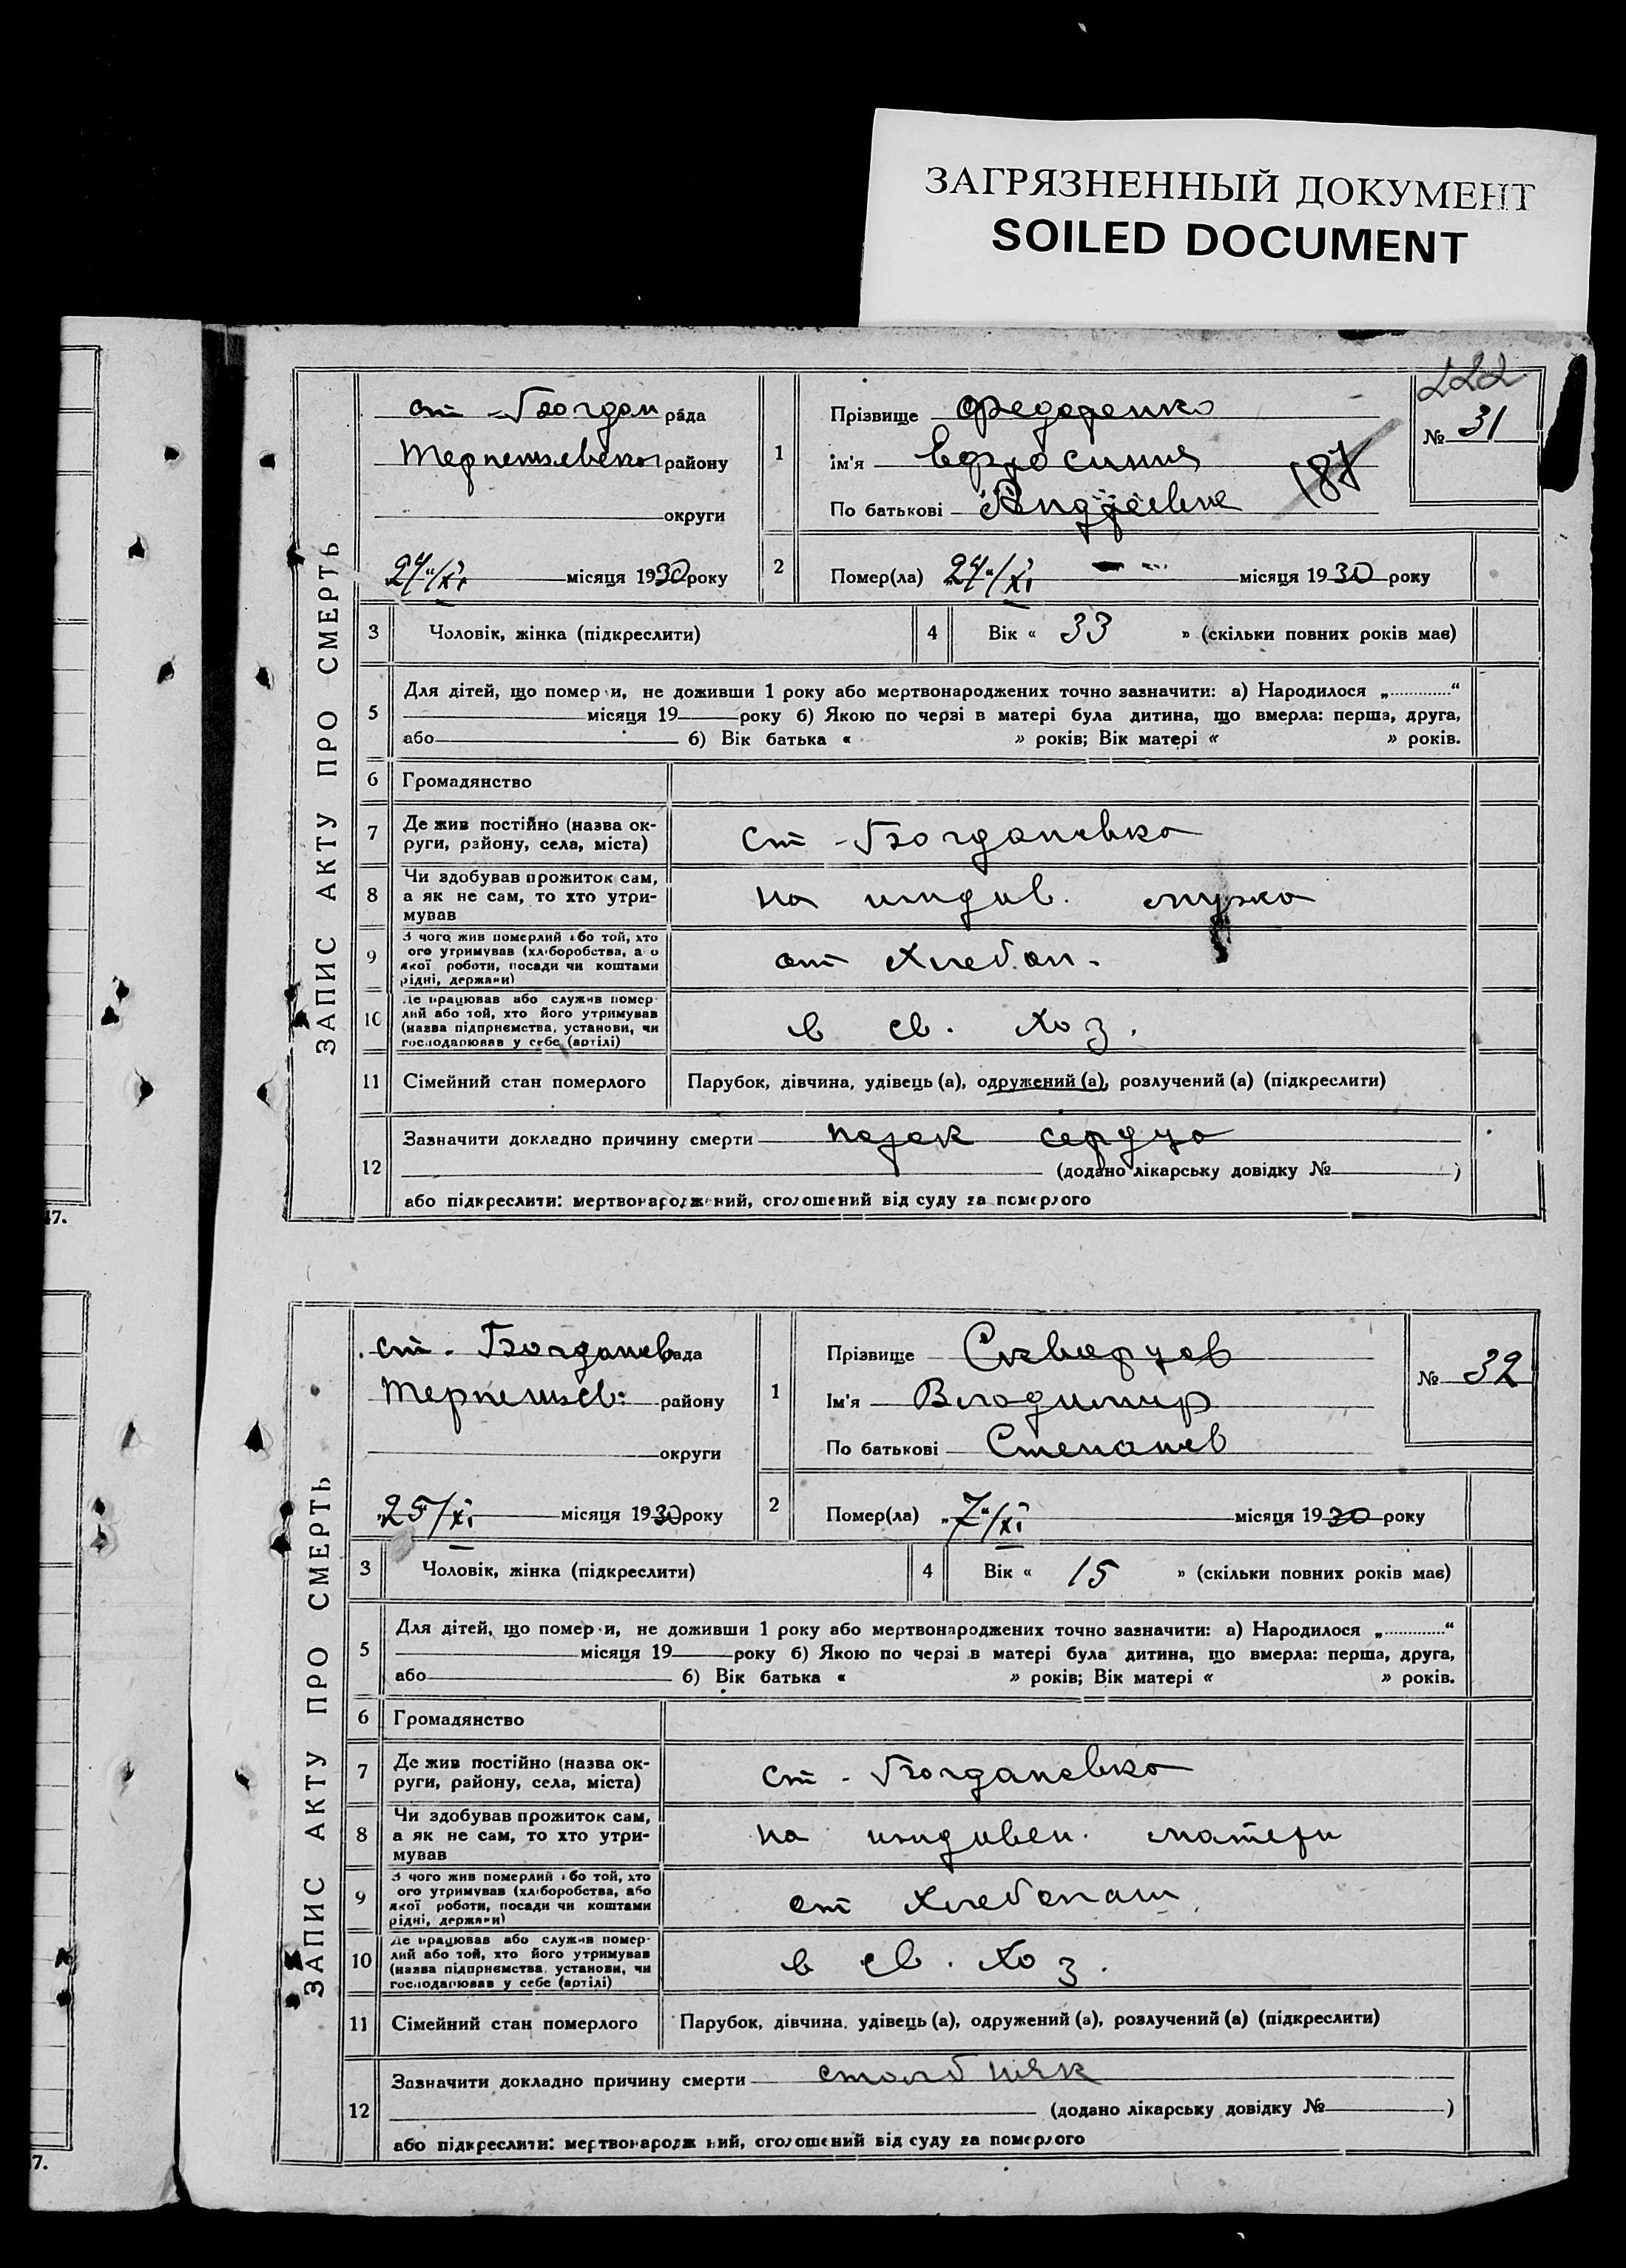 ЗАГРЯЗНЕННЫЙ ДОКУМЕНТ
SOILED DOCUMENT
222
ЗАПИС АКТУ ПРО СМЕРТЬ
ст - Богдан рада
району
округи
24/XI місяця 1930 року
1
Прізвище Федоренко
ім'я Ефросиния
По батькові Андреевна
187
№ 31
2
Помер(ла) „24“/XI місяця 1930 року
3 Чоловік, жінка (підкреслити)
4 Вік « 33 » (скільки повних років має)
5
Для дітей, що помер и, не доживши 1 року або мертвонароджених точно зазначити: а) Народилося „............“
місяця 19 року б) Якою по черзі в матері була дитина, що вмерла: перша, друга,
або б) Вік батька « » років; Вік матері « » років.
6 Громадянство
7 Де жив постійно (назва ок-
руги, району, села, міста)
ст - Богдановка
8 Чи здобував прожиток сам,
а як не сам, то хто утри-
мував
на иждив. мужа
9 З чого жив померлий або той, хто
ого утримував (хліборобства, або
якої роботи, посади чи коштами
рідні, держави)
от хлебоп.
10 Де працював або служив помер-
лий або той, хто його утримував
(назва підприємства, установи, чи
господарював у себе (артілі)
в св. хоз.
11 Сімейний стан померлого
Парубок, дівчина, удівець (а), одружений (а), розлучений (а) (підкреслити)
12
Зазначити докладно причину смерти сердца
(додано лікарську довідку № )
або підкреслити: мертвонароджений, оголошений від суду за померлого
47.
ЗАПИС АКТУ ПРО СМЕРТЬ
ст. Богданов рада
району
округи
„25/XI місяця 1930 року
1
Прізвище Скварцов
Ім'я Владимир
По батькові Степанов
№ 32
2
Помер(ла) „7“/XI місяця 1930 року
3 Чоловік, жінка (підкреслити)
4 Вік « 15 » (скільки повних років має)
5
Для дітей, що помер и, не доживши 1 року або мертвонароджених точно зазначити: а) Народилося „............“
місяця 19 року б) Якою по черзі в матері була дитина, що вмерла: перша, друга,
або б) Вік батька « » років; Вік матері « » років.
6 Громадянство
7 Де жив постійно (назва ок-
руги, району, села, міста)
ст - Богдановка
8 Чи здобував прожиток сам,
а як не сам, то хто утри-
мував
на иждивен. матери
9 З чого жив померлий або той, хто
ого утримував (хліборобства, або
якої роботи, посади чи коштами
рідні, держави)
от хлебопаш.
10 Де працював або служив помер-
лий або той, хто його утримував
(назва підприємства, установи, чи
господарював у себе (артілі)
в св. хоз.
11 Сімейний стан померлого
Парубок, дівчина, удівець (а), одружений (а), розлучений (а) (підкреслити)
12
Зазначити докладно причину смерти столбняк
(додано лікарську довідку № )
або підкреслити: мертвонародж ний, оголошений від суду за померлого
7.